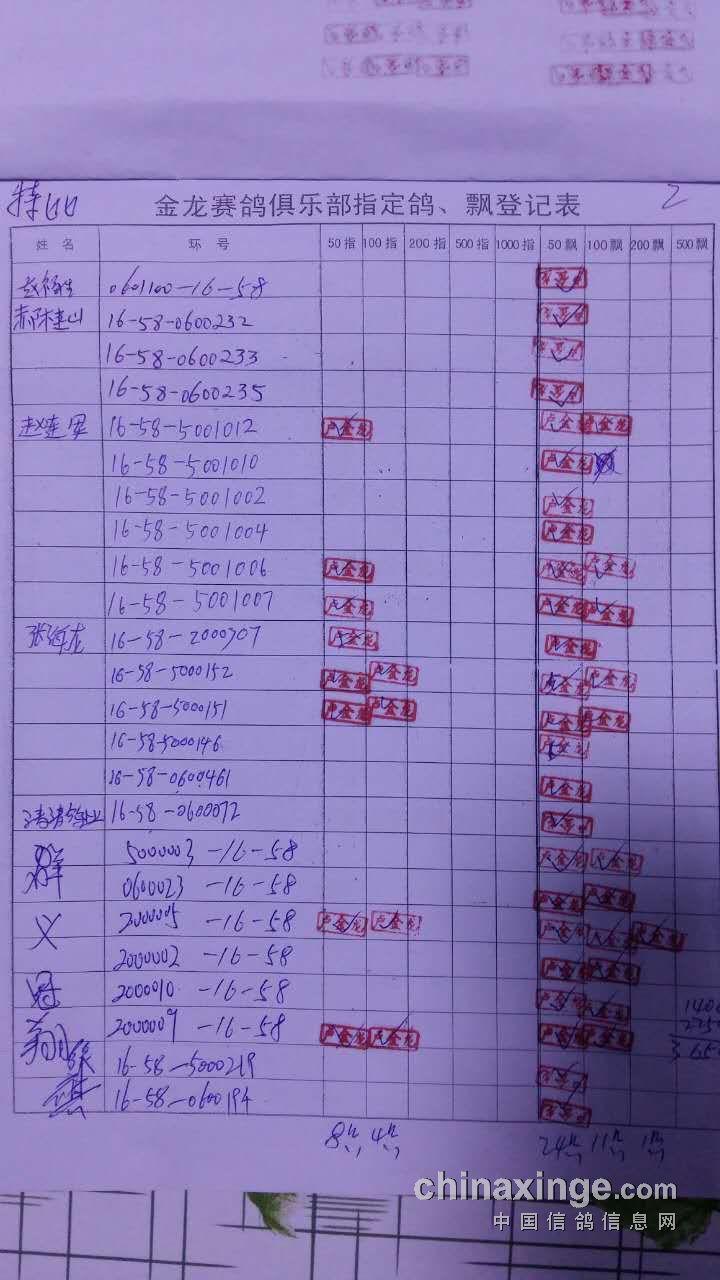 特
2
金龙赛鸽俱乐部指定鸽、飘登记表
姓 名 环 号 50 指 100 指 200 指 500 指 1000 指 50 飘 100 飘 200 飘 500 飘
0601100-16-58
16-58-0600232
16-58-0600233
16-58-0600235
赵连军 16-58-5001012 卢金龙 卢金龙 卢金龙
16-58-5001010 卢金龙
16-58-5001002 卢金龙
16-58-5001004 卢金龙
16-58-5001006 卢金龙 卢金龙 卢金龙
16-58-5001007 卢金龙 卢金龙 卢金龙
16-58-2000707 卢金龙 卢金龙
16-58-5000152 卢金龙 卢金龙 卢金龙 卢金龙
16-58-5000151 卢金龙 卢金龙 卢金龙 卢金龙
16-58-5000146 卢金龙
16-58-0600461 卢金龙
16-58-0600072
5000003-16-58 卢金龙 卢金龙
群 0600023-16-58 卢金龙 卢金龙
义 2000005-16-58 卢金龙 卢金龙 卢金龙 卢金龙 卢金龙
2000002-16-58 卢金龙 卢金龙
冠 2000010-16-58 卢金龙 卢金龙
翔 2000009-16-58 卢金龙 卢金龙 卢金龙 卢金龙
16-58-5000219
16-58-0600194
8 4 24 11 1
chinaxinge.com
中国信鸽信息网